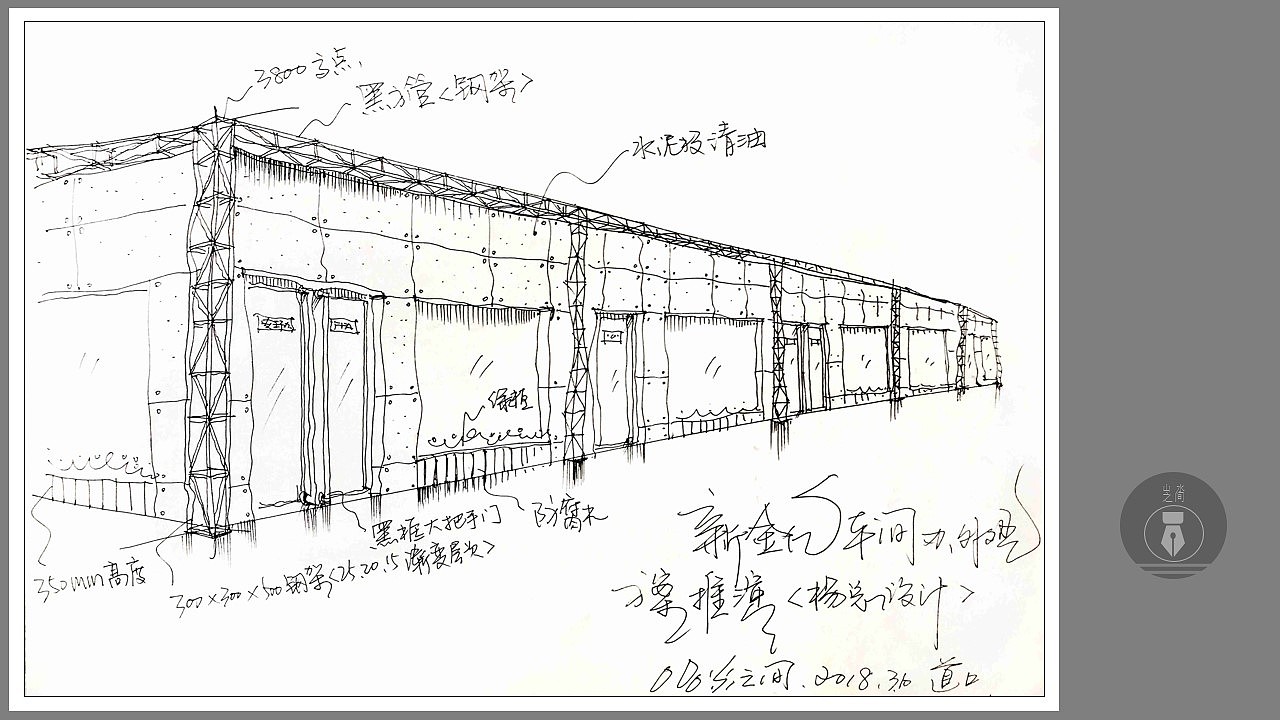 3800高点.
黑方管<钢架>
水泥板清油
绿植
防腐木
黑框大把手门
350mm高度
300×300×500钢架<25.20.15渐变层次>
新金 车间
方案推演<杨总设计>
之间. 2018.3.6 道口